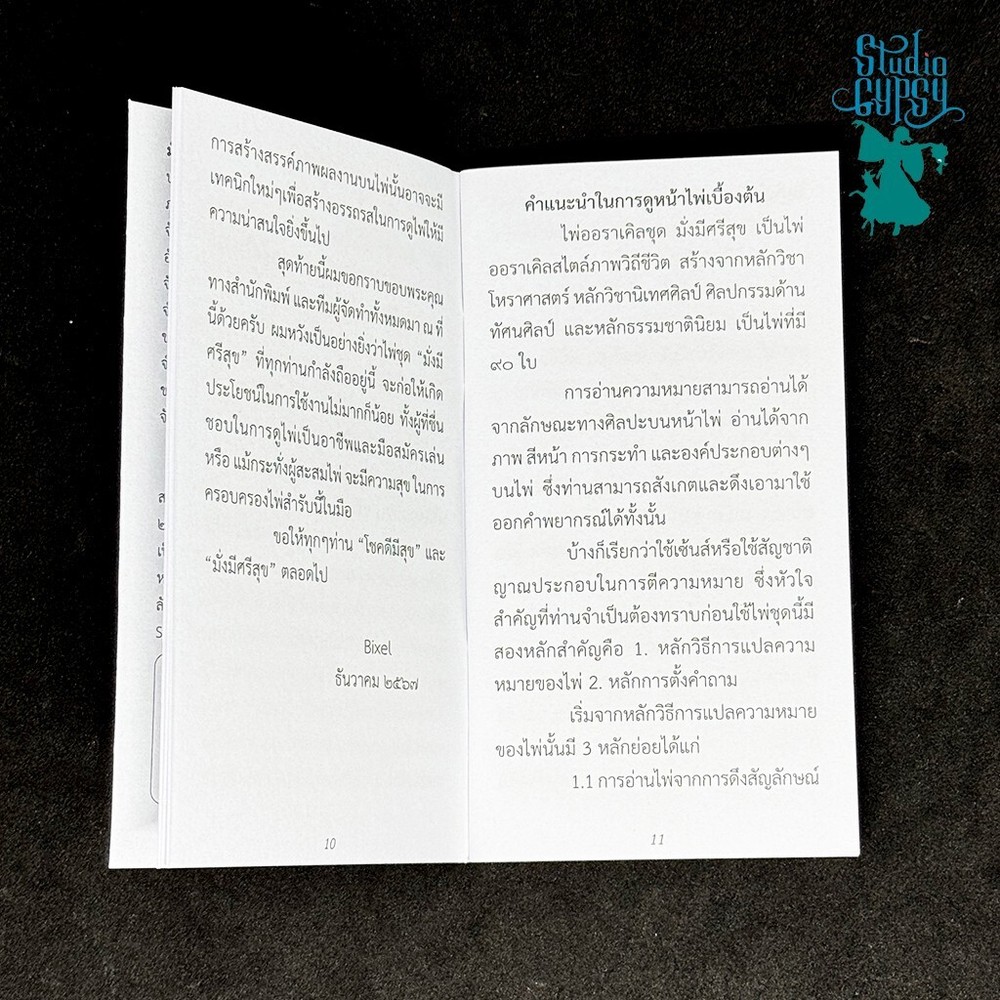 Studio
GYPSY
การสร้างสรรค์ภาพผลงานบนไพ่นั้นอาจจะมี
เทคนิกใหม่ๆเพื่อสร้างอรรถรสในการดูไพ่ให้มี
ความน่าสนใจยิ่งขึ้นไป
สุดท้ายนี้ผมขอกราบขอบพระคุณ
ทางสำนักพิมพ์ และทีมผู้จัดทำทั้งหมดมา ณ ที่
นี้ด้วยครับ ผมหวังเป็นอย่างยิ่งว่าไพ่ชุด “มั่งมี
ศรีสุข” ที่ทุกท่านกำลังถืออยู่นี้ จะก่อให้เกิด
ประโยชน์ในการใช้งานไม่มากก็น้อย ทั้งผู้ที่ชื่น
ชอบในการดูไพ่เป็นอาชีพและมือสมัครเล่น
หรือ แม้กระทั่งผู้สะสมไพ่ จะมีความสุข ในการ
ครอบครองไพ่สำรับนี้ในมือ
ขอให้ทุกๆท่าน “โชคดีมีสุข” และ
“มั่งมีศรีสุข” ตลอดไป
Bixel
ธันวาคม ๒๕๖๗
10
คำแนะนำในการดูหน้าไพ่เบื้องต้น
ไพ่ออราเคิลชุด มั่งมีศรีสุข เป็นไพ่
ออราเคิลสไตล์ภาพวิถีชีวิต สร้างจากหลักวิชา
โหราศาสตร์ หลักวิชานิเทศศิลป์ ศิลปกรรมด้าน
ทัศนศิลป์ และหลักธรรมชาตินิยม เป็นไพ่ที่มี
๙๐ ใบ
การอ่านความหมายสามารถอ่านได้
จากลักษณะทางศิลปะบนหน้าไพ่ อ่านได้จาก
ภาพ สีหน้า การกระทำ และองค์ประกอบต่างๆ
บนไพ่ ซึ่งท่านสามารถสังเกตและดึงเอามาใช้
ออกคำพยากรณ์ได้ทั้งนั้น
บ้างก็เรียกว่าใช้เซ้นส์หรือใช้สัญชาติ
ญาณประกอบในการตีความหมาย ซึ่งหัวใจ
สำคัญที่ท่านจำเป็นต้องทราบก่อนใช้ไพ่ชุดนี้มี
สองหลักสำคัญคือ 1. หลักวิธีการแปลความ
หมายของไพ่ 2. หลักการตั้งคำถาม
เริ่มจากหลักวิธีการแปลความหมาย
ของไพ่นั้นมี 3 หลักย่อยได้แก่
1.1 การอ่านไพ่จากการดึงสัญลักษณ์
11